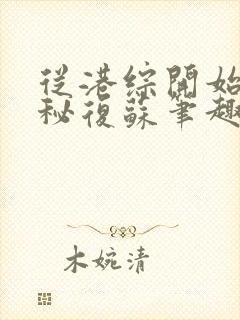 從港綜開始
秘復蘇筆趣
木婉清